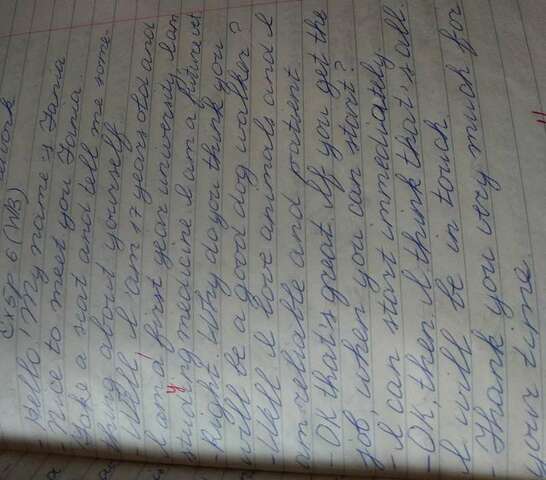 Ex 5 p 6 (WB)
- Hello! My name is Tania
- Nice to meet you Tania.
Take a seat and tell me some-
thing about yourself
- Well I am 17 years old and
I am a first year university. I am
studying medicine I am a future vet
- Right. Why do you think you
will be a good dog walker?
- Well I love animals and I
am reliable and patient
- Ok that's great. If you get the
job, when you can start?
- I can start immediately
- Ok, then I think that's all.
I will be in touch
- Thank you very much for
your time.